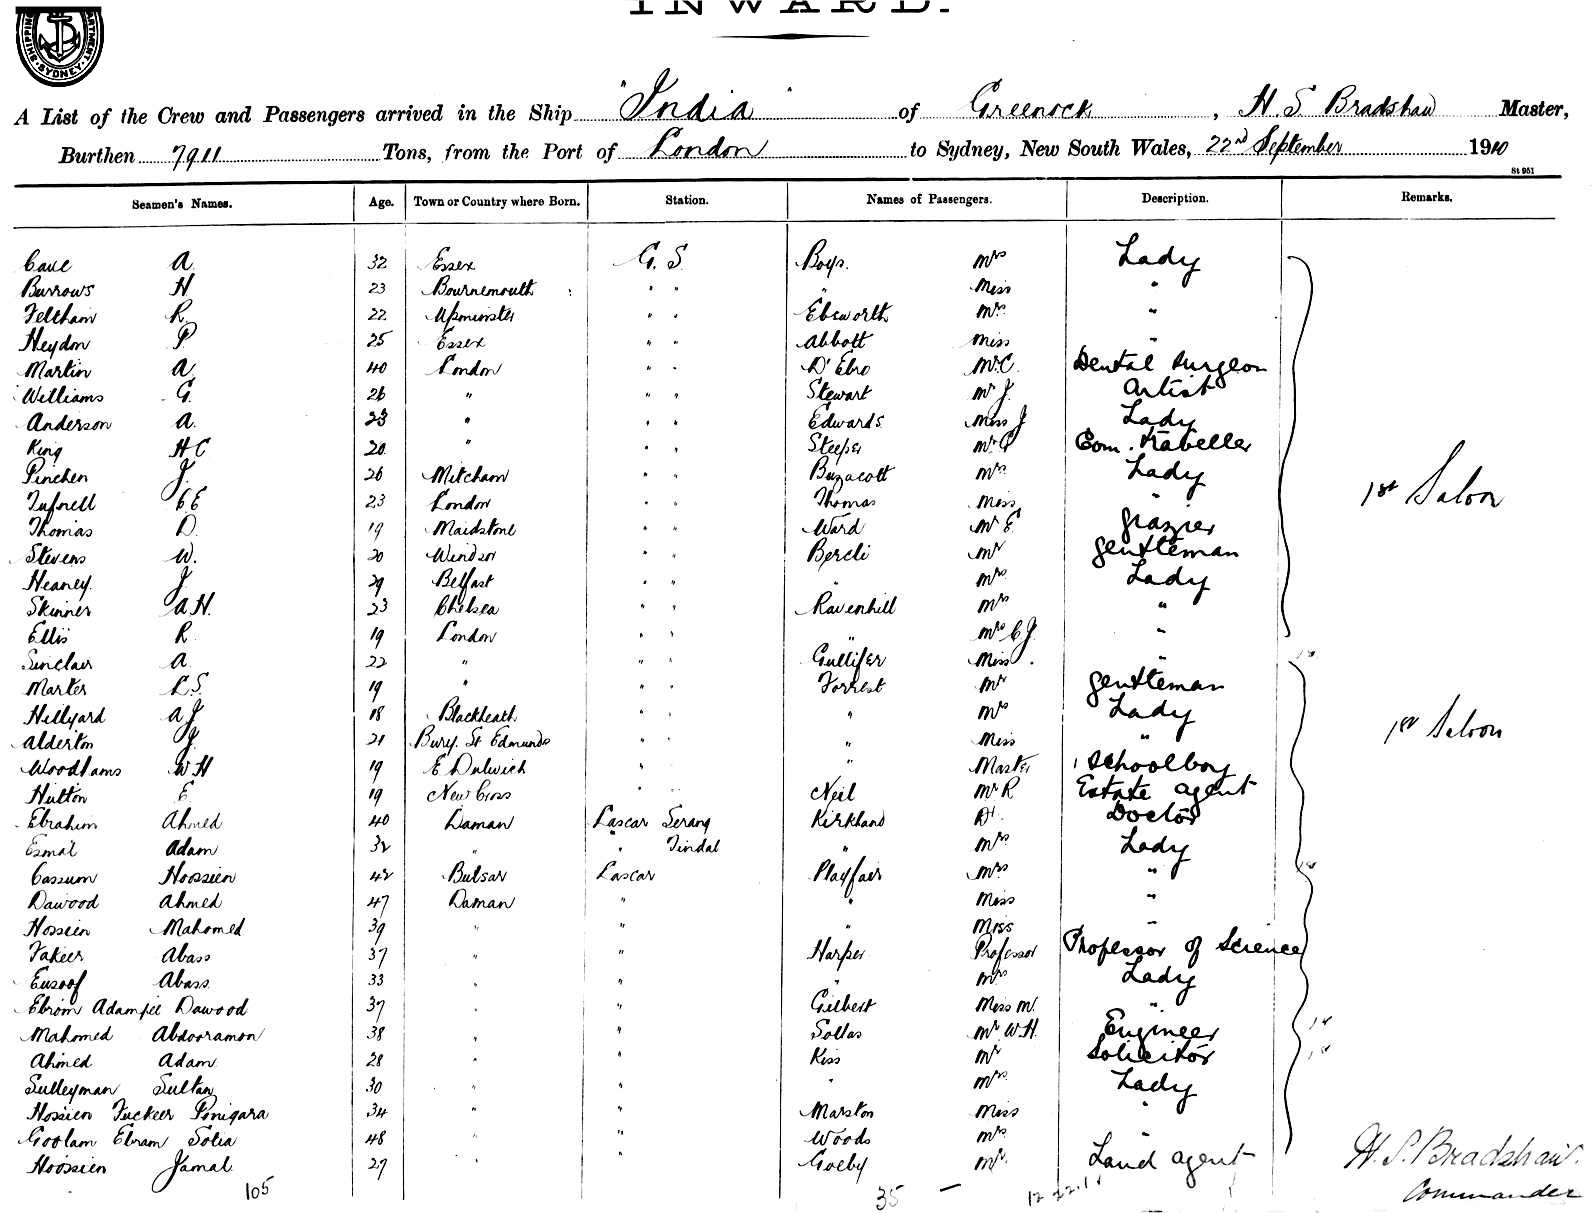 INWARD.
SHIPPING DEPARTMENT. SYDNEY.
A List of the Crew and Passengers arrived in the Ship "India" of Greenock, H. S Bradshaw Master,
Burthen 7911 Tons, from the Port of London to Sydney, New South Wales, 22nd September 1910
St 951
Seamen's Names. Age. Town or Country where Born. Station. Names of Passengers. Description. Remarks.
Cave A. 32 Essex G. S. Boys. Mrs Lady
Burrows H 23 Bournemouth " " " Miss "
Feltham R. 22 Upminster " " Ebsworth Mrs "
Heydon P. 25 Essex " " Abbott Miss "
Martin A. 40 London " " D'Ebro Mr C. Dental Surgeon
Williams G. 26 " " " Stewart Mr J. Artist
Anderson A. 23 " " " Edwards Miss J Lady
King H C 20 " " " Steeper Mr C Com. Traveller
Pinchen J. 26 Mitcham " " Buzacott Mrs Lady
Tufnell C E 23 London " " Thomas Miss " 1st Saloon
Thomas D. 19 Maidstone " " Ward Mr E. Grazier
Stevens W. 20 Windsor " " Bercli Mr Gentleman
Heaney. J 29 Belfast " " " Mrs Lady
Skinner A H. 23 Chelsea " " Ravenhill Mrs "
Ellis R. 19 London " " " Mrs C J. "
Sinclair A. 22 " " " Gullifer Miss. "
Marter L S. 19 " " " Forrest Mr Gentleman
Hillyard A J 18 Blackheath " " " Mrs Lady
Alderton J. 21 Bury. St Edmunds " " " Miss " 1st Saloon
Woodhams W H 19 E Dulwich " " Master Schoolboy
Hutton E. 19 New Cross " " Neil Mr R Estate Agent
Ebrahim Ahmed 40 Daman Lascar Serang Kirkland Dr. Doctor
Esmal Adam 32 " " Tindal " Mrs Lady
Cassum Hoosien 42 Bulsar Lascar Playfair Mrs "
Dawood Ahmed 47 Daman " " Miss "
Hossien Mahomed 39 " " " Miss "
Fakeer Abass 37 " " Harper Professor Professor of Science
Eusoof Abass. 33 " " " Mrs Lady
Ebrom Adamjee Dawood 37 " " Gilbert Miss M. "
Mahomed Abdooramon 38 " " Sollas Mr W.H. Engineer
Ahmed Adam 28 " " Kiss Mr Solicitor
Sulleyman Sultan 30 " " " Mrs Lady
Hossien Fuckeer Ponigara 34 " " Marston Miss "
Goolam Ebram Sotia 48 " " Woods Mrs "
Hoosien Jamal 27 " " Goeby Mr. Land Agent
H. S. Bradshaw.
Commander
105 35 –